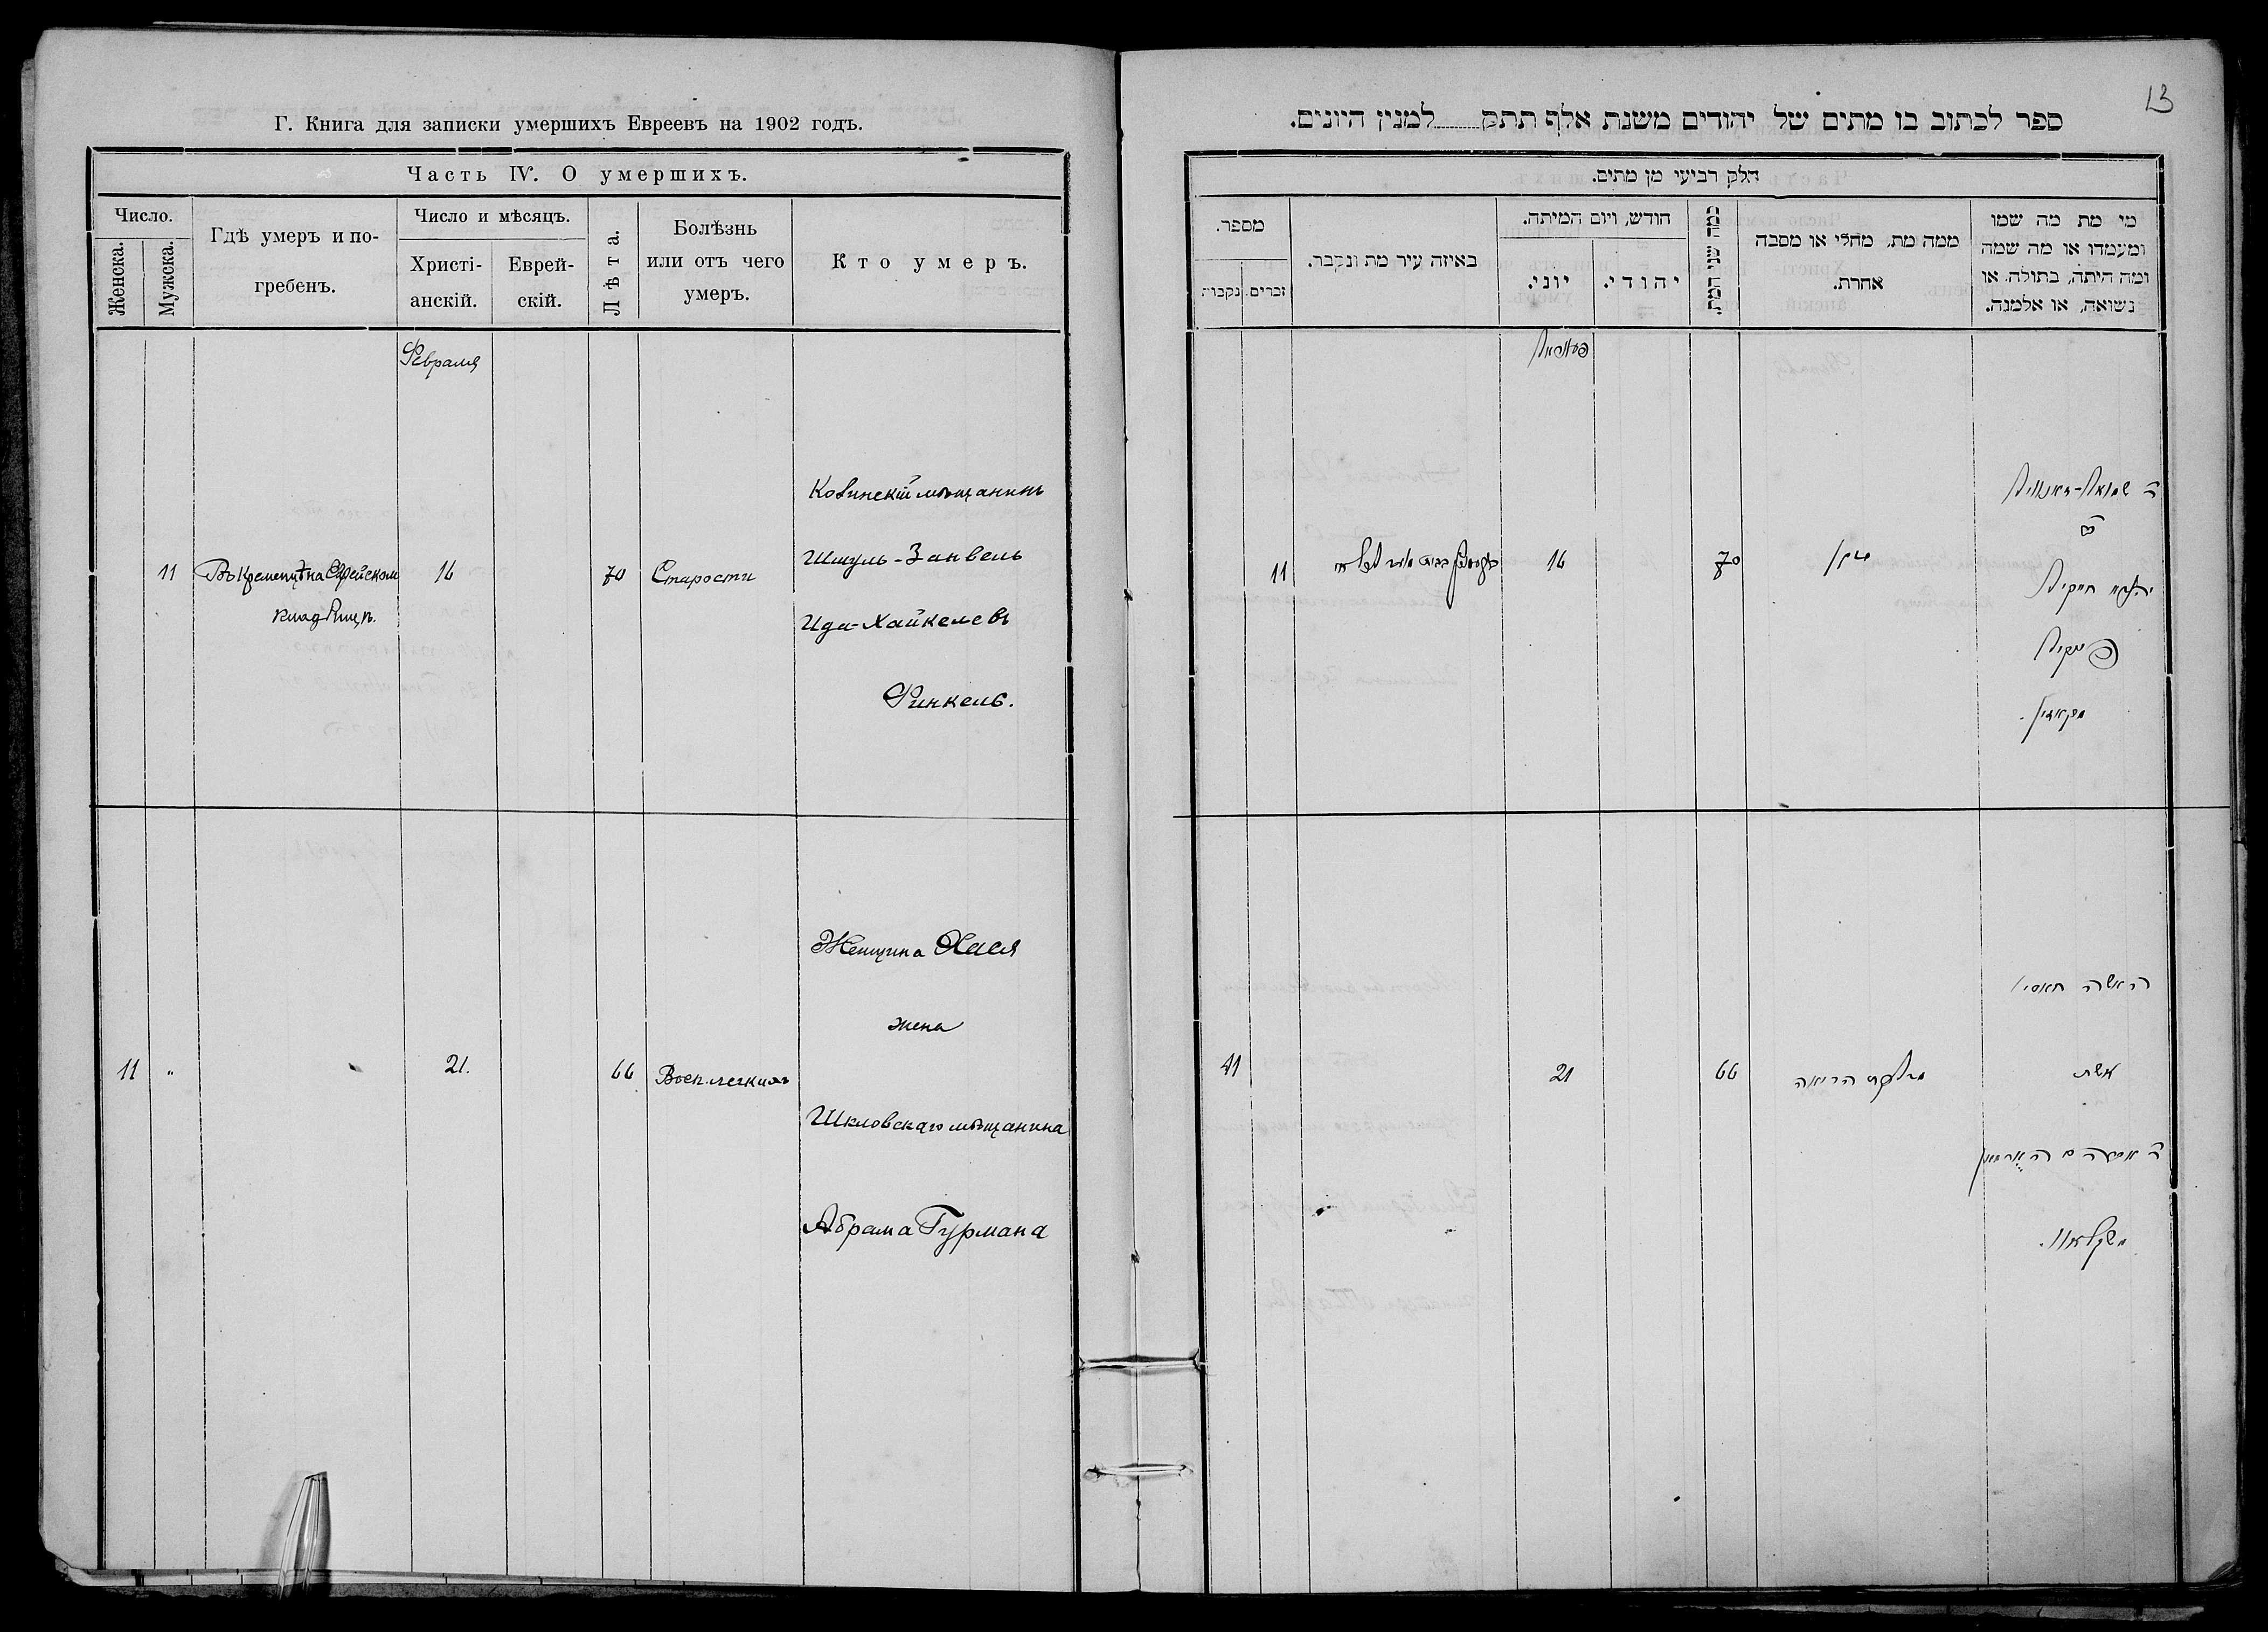 Г. Книга для записки умершихъ Евреевъ на 1902 годъ.
Часть IV. О умершихъ.
Число.
Женска.
Мужска.
Гдѣ умеръ и по-
гребенъ.
Число и мѣсяцъ.
Христі-
анскій.
Еврей-
скій.
Лѣта.
Болѣзнь
или отъ чего
умеръ.
Кто умеръ.
Февраля
11 Въ Кременчугѣ на Еврейском 16 70 Старости
кладбищѣ.
Ковинскій мѣщанинъ
Шмуль-Занвель
Ида-Хайкелевъ
Финкель.
11 " 21. 66 Восп. легкихъ
Женщина Хася
жена
Шкловскаго мѣщанина
Абрама Гурмана
13
ספר לכתוב בו מתים של יהודים משנת אלף תתק למנין היונים.
חלק רביעי מן מתים.
מי מת מה שמו
ומעמדו או מה שמה
ומה היתה, בתולה, או
נשואה, או אלמנה.
ממה מת, מחלי או מסבה
אחרת.
כמה שני המת.
חודש, ויום המיתה.
יהודי.
יוני.
באיזה עיר מת ונקבר.
מספר.
זכרים.
נקבות
11 16 70 זקן
ה שמואל-זאנוויל
פינקיל
האשה חאסי
אשת
11 21 66 הריאה
משקלאוו.